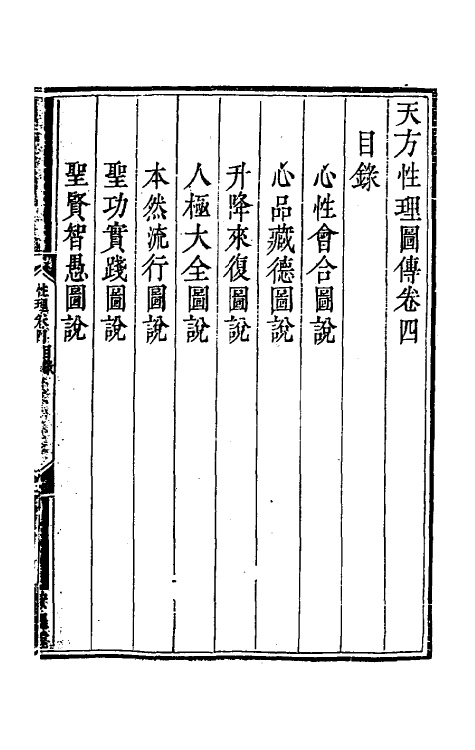 天方性理圖傳卷四
目錄
心性會合圖說
心品藏德圖說
升降來復圖說
人極大全圖說
本然流行圖說
聖功實踐圖說
聖賢智愚圖說
性理卷四目錄